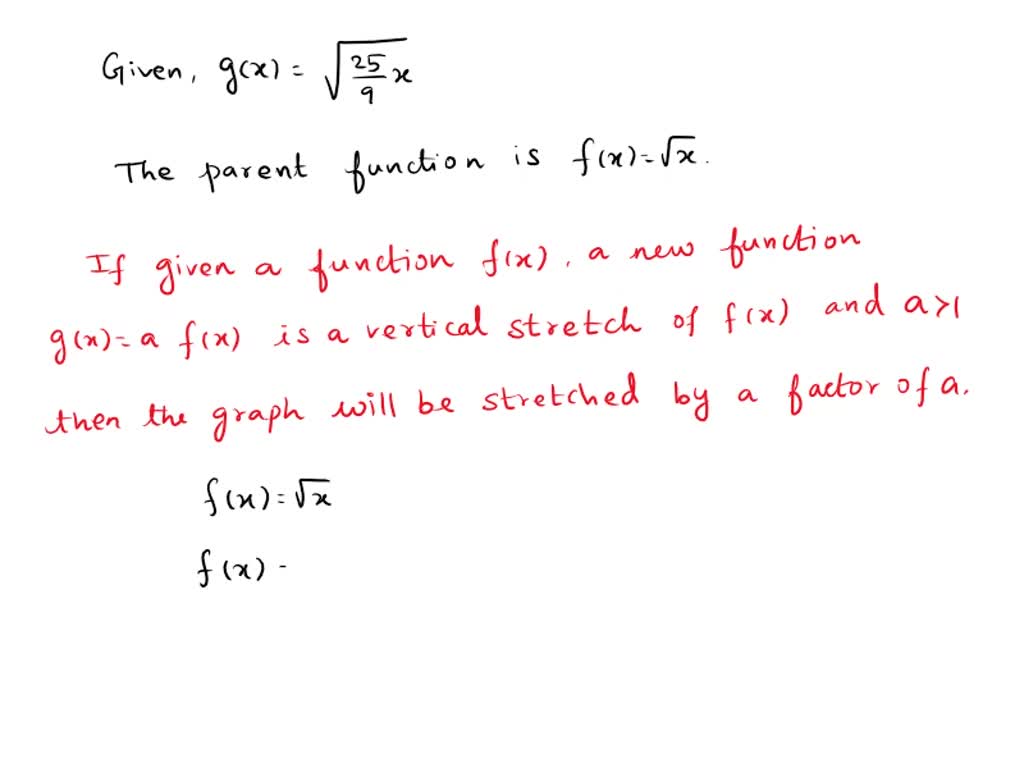 Given, g(x) = √(25/9 x)
The parent function is f(x)=√x.
If given a function f(x), a new function
g(x)=a f(x) is a vertical stretch of f(x) and a>1
then the graph will be stretched by a factor of a.
f(x)=√x
f(x) -